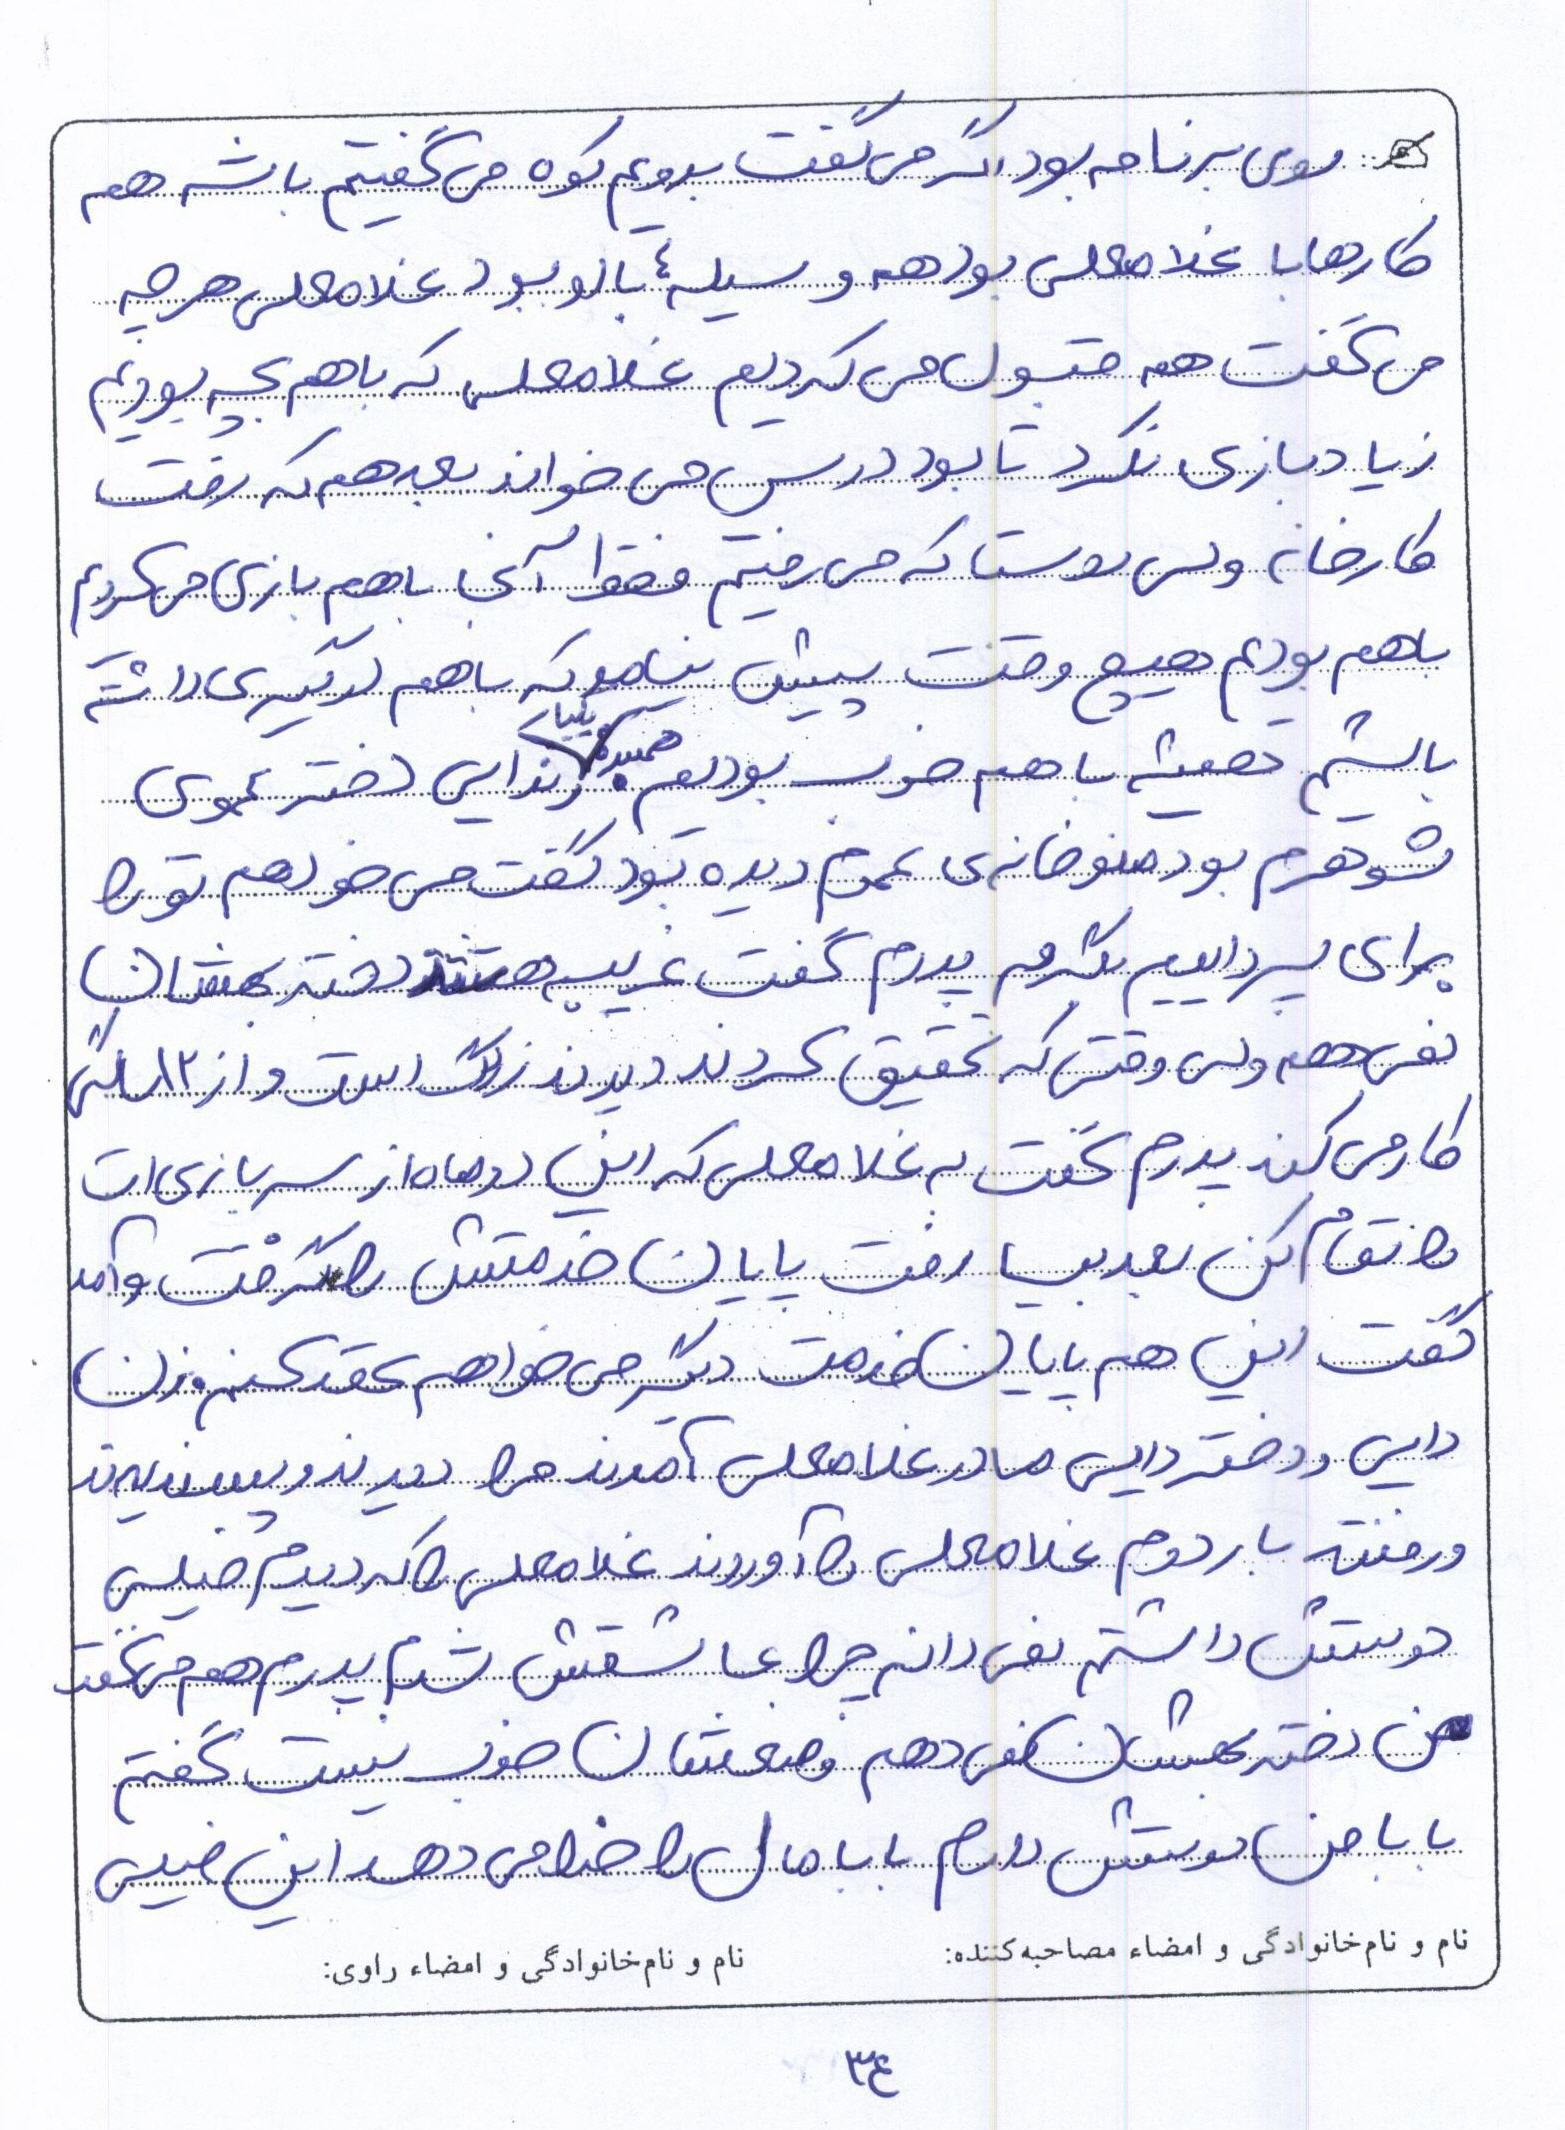 روی برنامه بود اگر می گفت برویم کوه می گفتیم باشه همه
کارها با غلامعلی بود همه وسیله ٤ با او بود غلامعلی هر چه
می گفت همه قبول می کردیم غلامعلی که با هم بچه بودیم
زیاد بازی نکرد تا بود درس می خواند بعد هم که رفت
کارخانه ولی روستا که می رفتیم فقط آنجا با هم بازی می کردیم
با هم بودیم هیچ وقت پیش نیامد که با هم درگیری داشته
باشیم همیشه با هم خوب بودیم زندایی دختر عموی
شوهرم بود منو خانه ی عموم دیده بود گفت می خواهم تو را
برای پسر داییم بگیرم پدرم گفت غریبه هستند دختر بهشان
نمی دهم ولی وقتی که تحقیق کردند دیدند زرنگ است و از ١٢ سالگی
کار می کند پدرم گفت به غلامعلی که این دو ماه از سربازی ات
را تمام کن بعد بیا رفت پایان خدمتش را گرفت و آمد
گفت این هم پایان خدمت دیگر می خواهم عقد کنم و زن
دایی و دختر دایی مادر غلامعلی آمدند مرا دیدند و پسندیدند
و رفتند بار دوم غلامعلی را آوردند غلامعلی را که دیدم خیلی
دوستش داشتم نمی دانم چرا عاشقش شدم پدرم هم می گفت
من دختر بهشان نمی دهم وضعشان خوب نیست گفتم
بابا من دوستش دارم بابا مال را خدا می دهد این خیلی
نام و نام خانوادگی و امضاء مصاحبه کننده:
نام و نام خانوادگی و امضاء راوی:
٣٤